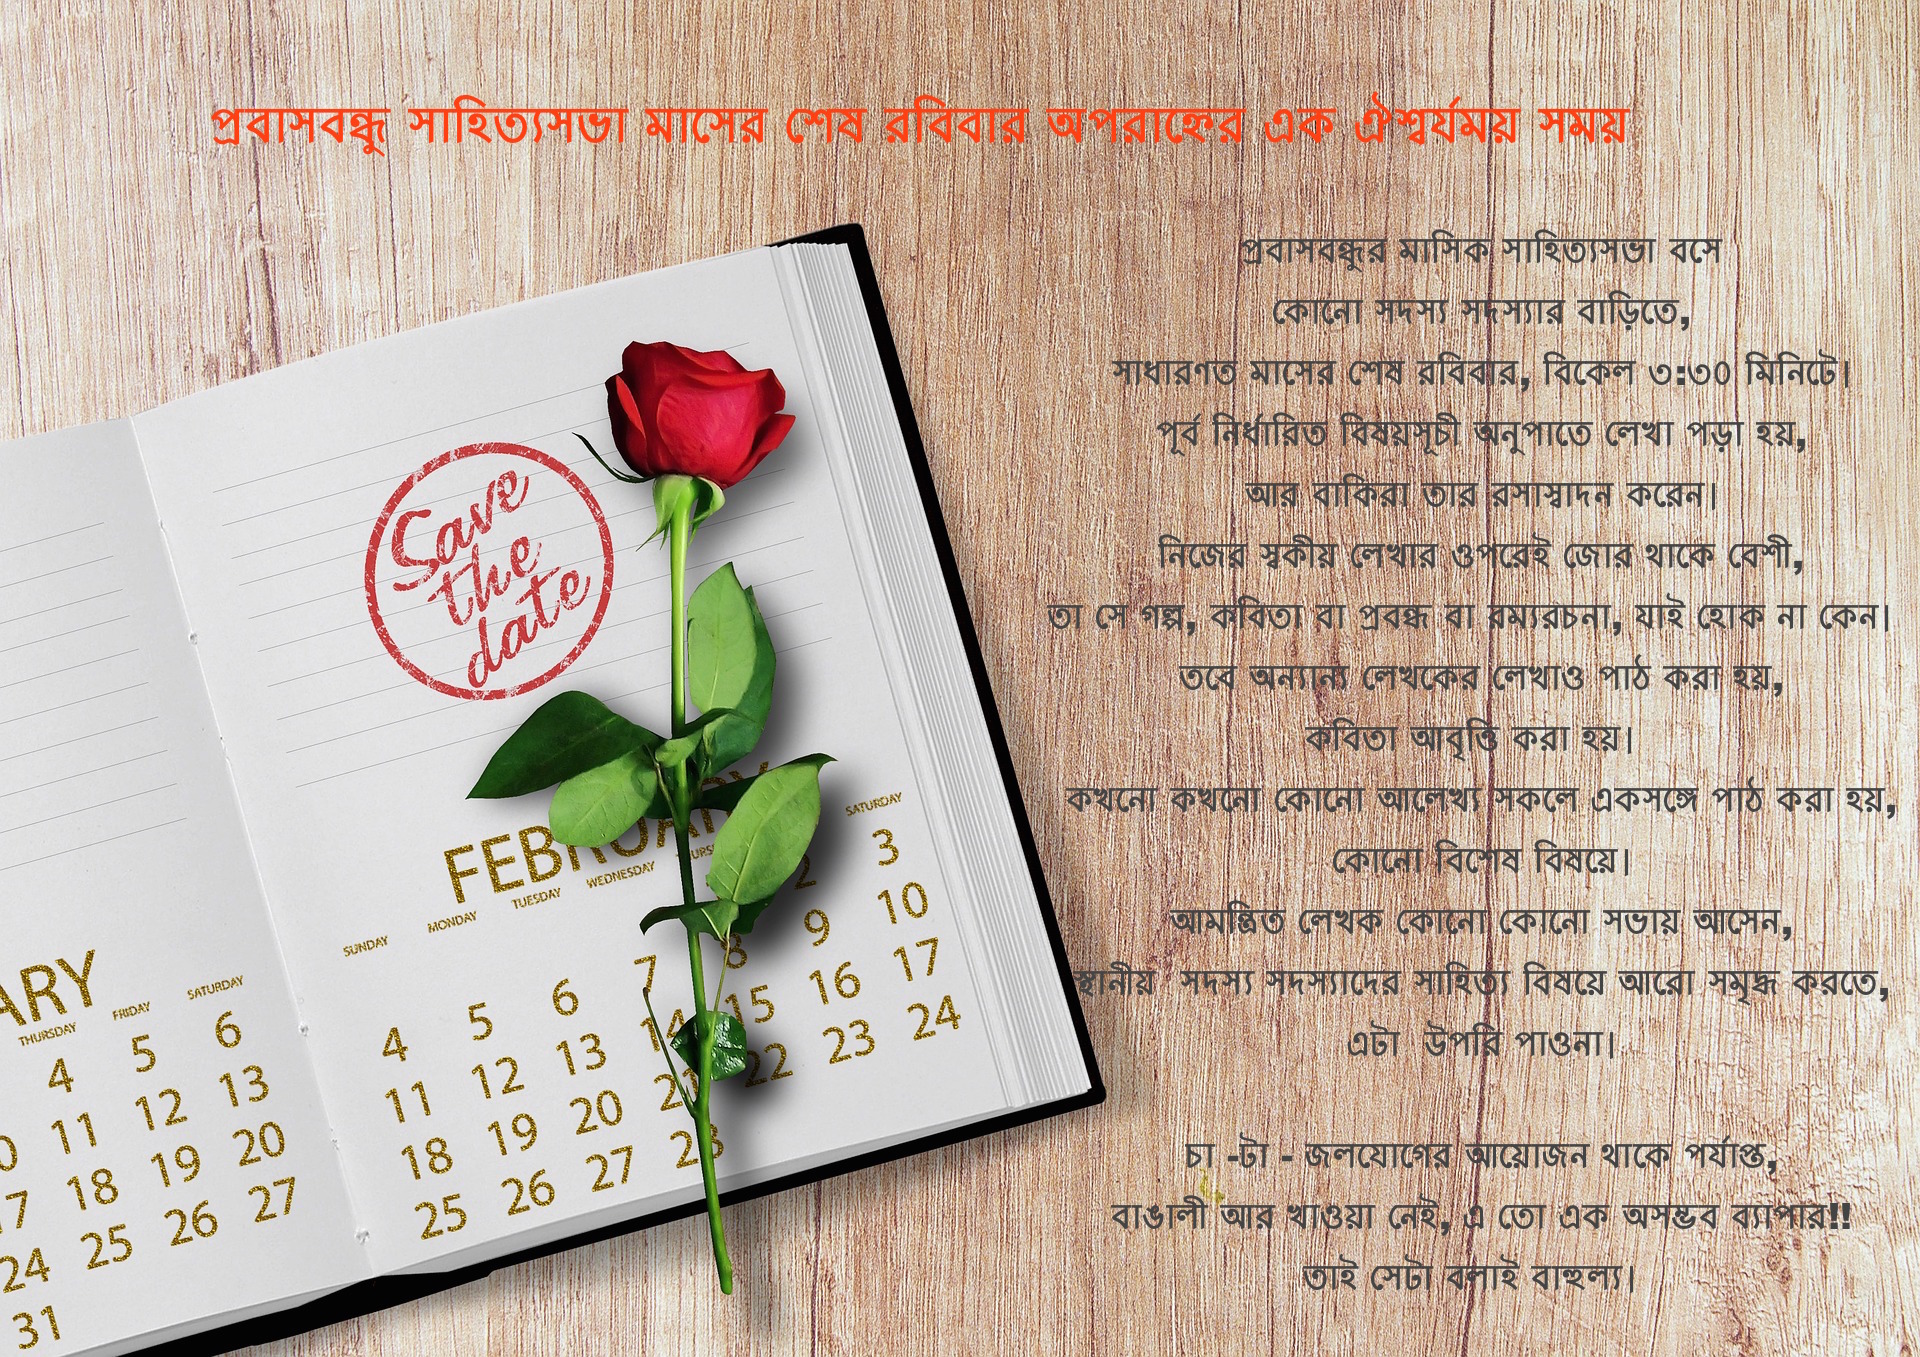 প্রবাসবন্ধু সাহিত্যসভা মাসের শেষ রবিবার অপরাহ্নের এক ঐশ্বর্যময় সময়
প্রবাসবন্ধুর মাসিক সাহিত্যসভা বসে
কোনো সদস্য সদস্যার বাড়িতে,
সাধারণত মাসের শেষ রবিবার, বিকেল ৩:৩০ মিনিটে।
পূর্ব নির্ধারিত বিষয়সূচী অনুপাতে লেখা পড়া হয়,
আর বাকিরা তার রসাস্বাদন করেন।
নিজের স্বকীয় লেখার ওপরেই জোর থাকে বেশী,
তা সে গল্প, কবিতা বা প্রবন্ধ বা রম্যরচনা, যাই হোক না কেন।
তবে অন্যান্য লেখকের লেখাও পাঠ করা হয়,
কবিতা আবৃত্তি করা হয়।
কখনো কখনো কোনো আলেখ্য সকলে একসঙ্গে পাঠ করা হয়,
কোনো বিশেষ বিষয়ে।
আমন্ত্রিত লেখক কোনো কোনো সভায় আসেন,
স্থানীয় সদস্য সদস্যাদের সাহিত্য বিষয়ে আরো সমৃদ্ধ করতে,
এটা উপরি পাওনা।
চা -টা - জলযোগের আয়োজন থাকে পর্যাপ্ত,
বাঙালী আর খাওয়া নেই, এ তো এক অসম্ভব ব্যাপার!!
তাই সেটা বলাই বাহুল্য।
Save
the
date
FEBRUARY
SUNDAY MONDAY TUESDAY WEDNESDAY SATURDAY
2 3
4 5 6 7 8 9 10
11 12 13 14 15 16 17
18 19 20 21 22 23 24
25 26 27 28
ARY
THURSDAY FRIDAY SATURDAY
4 5 6
11 12 13
18 19 20
24 25 26 27
31